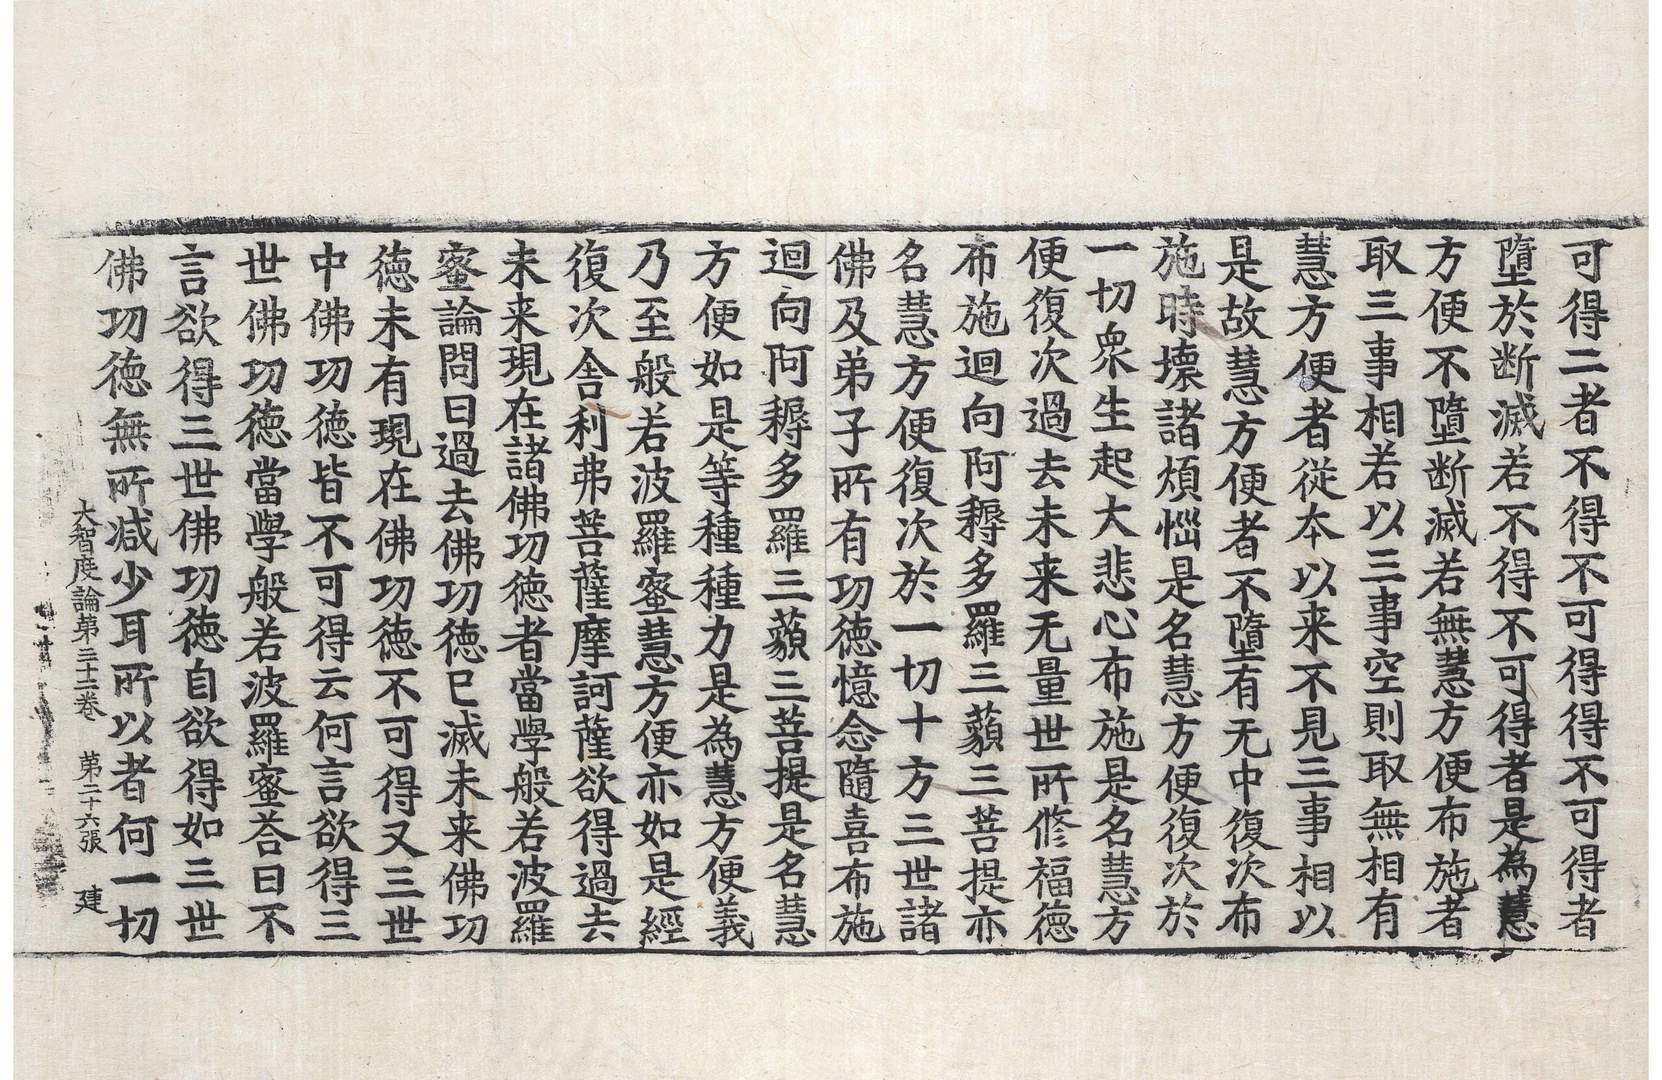 可得二者不得不可得得不可得者
墮於断滅若不得不可得者是為慧
方便不墮断滅若無慧方便布施者
取三事相若以三事空則取無相有
慧方便者從本以来不見三事相以
是故慧方便者不墮有无中復次布
施時壞諸煩惱是名慧方便復次於
一切衆生起大悲心布施是名慧方
便復次過去未来无量世所修福德
布施迴向阿耨多羅三藐三菩提亦
名慧方便復次於一切十方三世諸
佛及弟子所有功徳憶念隨喜布施
迴向阿耨多羅三藐三菩提是名慧
方便如是等種種力是為慧方便義
乃至般若波羅蜜慧方便亦如是經
復次舍利弗菩薩摩訶薩欲得過去
未来現在諸佛功徳者當學般若波羅
蜜論問曰過去佛功徳已滅未来佛功
徳未有現在佛功徳不可得又三世
中佛功徳皆不可得云何言欲得三
世佛功徳當學般若波羅蜜荅曰不
言欲得三世佛功徳自欲得如三世
佛功徳無所减少耳所以者何一切
大智度論第三十三卷　第二十六張　建